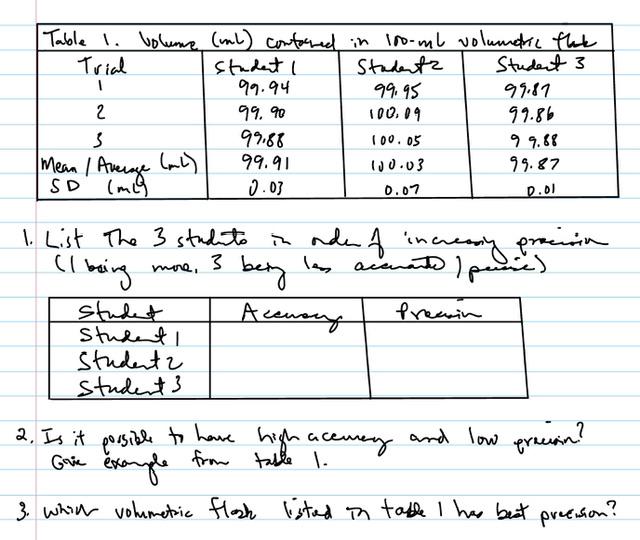 Table 1. Volume (mL) contained in 100-mL volumetric flask
Trial Student 1 Student 2 Student 3
1 99.94 99.95 99.87
2 99.90 100.09 99.86
3 99.88 100.05 99.88
Mean / Average (mL) 99.91 100.03 99.87
SD (mL) 0.03 0.07 0.01
1. List The 3 students in order of increasing precision
(1 being more, 3 being less accurate / precise)
Student Accuracy Precision
Student 1
Student 2
Student 3
2. Is it possible to have high accuracy and low precision?
Give example from table 1.
3. Which volumetric flask listed in table 1 has best precision?